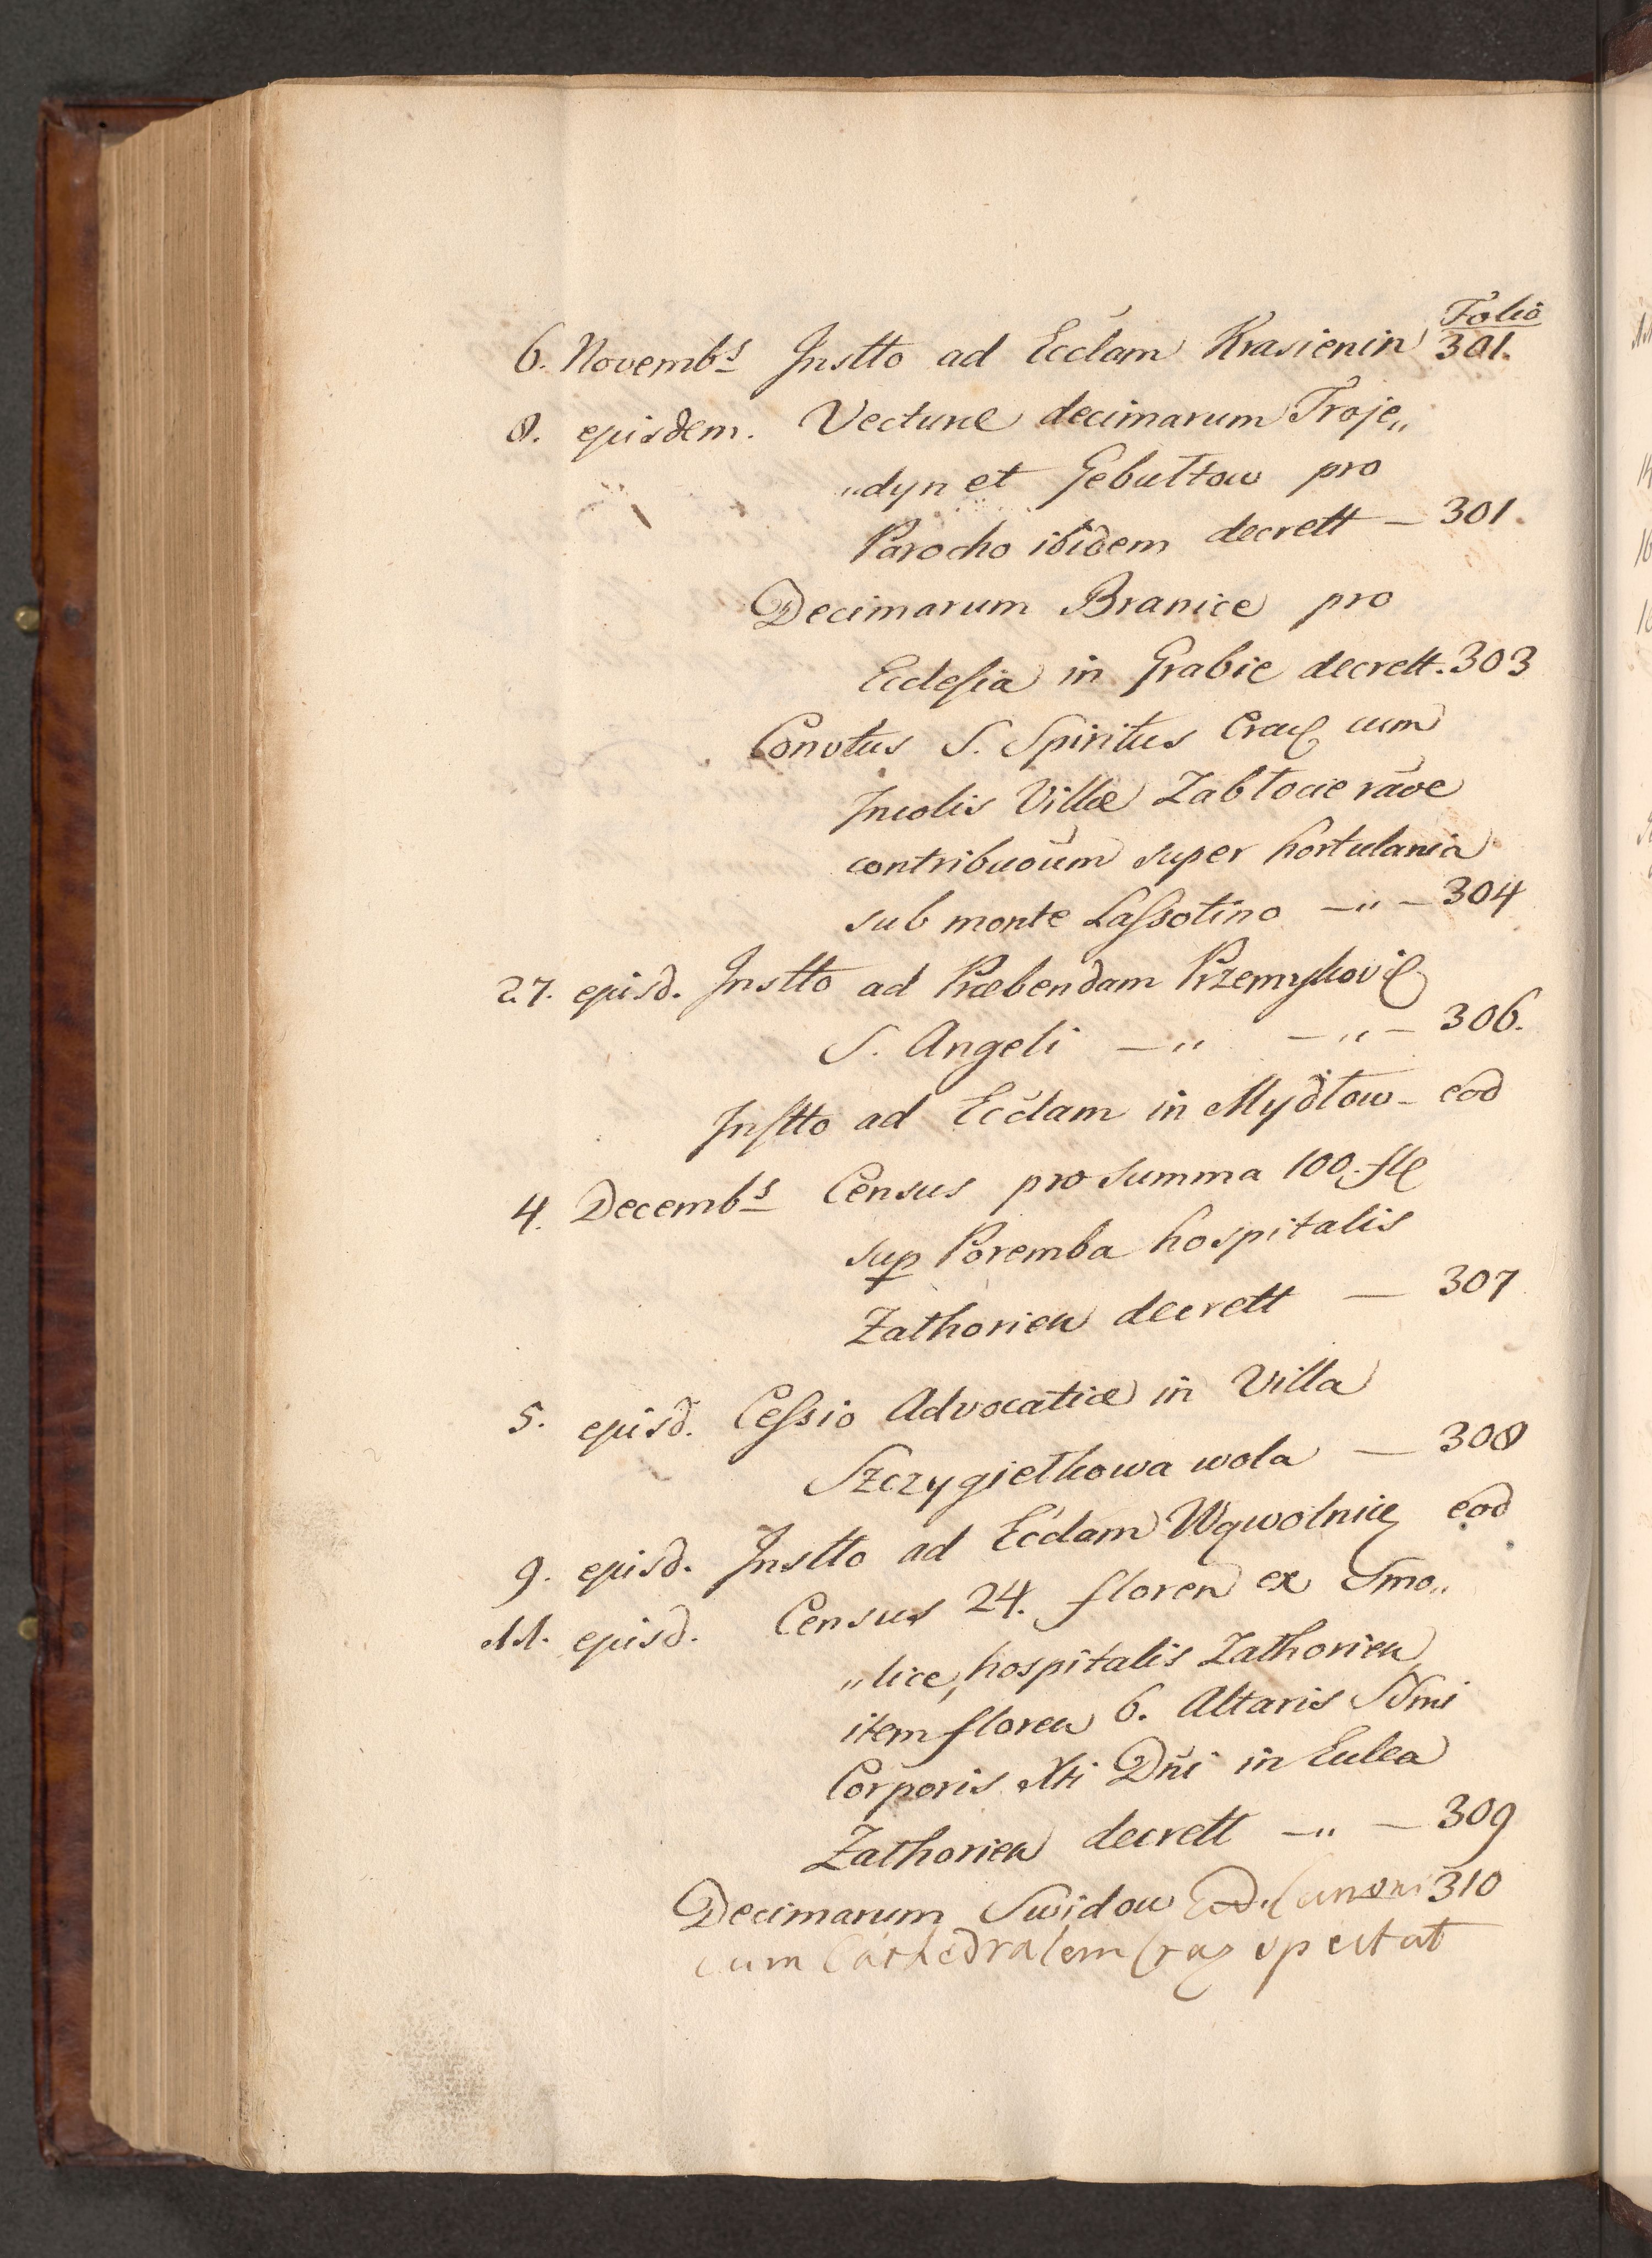 Folio
6. Novembs Instto ad Ecclam Krasienin 301.
8. ejusdem. Vecturae decimarum Troje„
„dyn et Gebułtow pro
Parocho ibidem decrett — 301.
Decimarum Branice pro
Ecclesia in Grabie decrett. 303
Convtus S. Spiritus Crac cum
Incolis Villae Zabłocie raõe
contribuõum super hortulania
sub monte Lassotino —„— 304
27. ejusd. Instto ad Praebendam Przemykovic
S. Angeli —„ —„— 306.
Instto ad Ecclam in Mydłow — eod
4. Decembs Census pro summa 100. fl
sup Poremba hospitalis
Zathorien decrett — 307
5. ejusd. Cessio Advocatiae in Villa
Szczygiełkowa wola — 308
9. ejusd. Instto ad Ecclam Wąwolnic eod
11. ejusd. Census 24. floren ex Smo„
„lice, hospitalis Zathorien,
item floren 6. Altaris SSmi
Corporis Xti Dñi in Eulea
Zathorien decrett —„— 309
Decimarum Swidow Eod. Canoni 310
cum Cathedralem Crac spectat